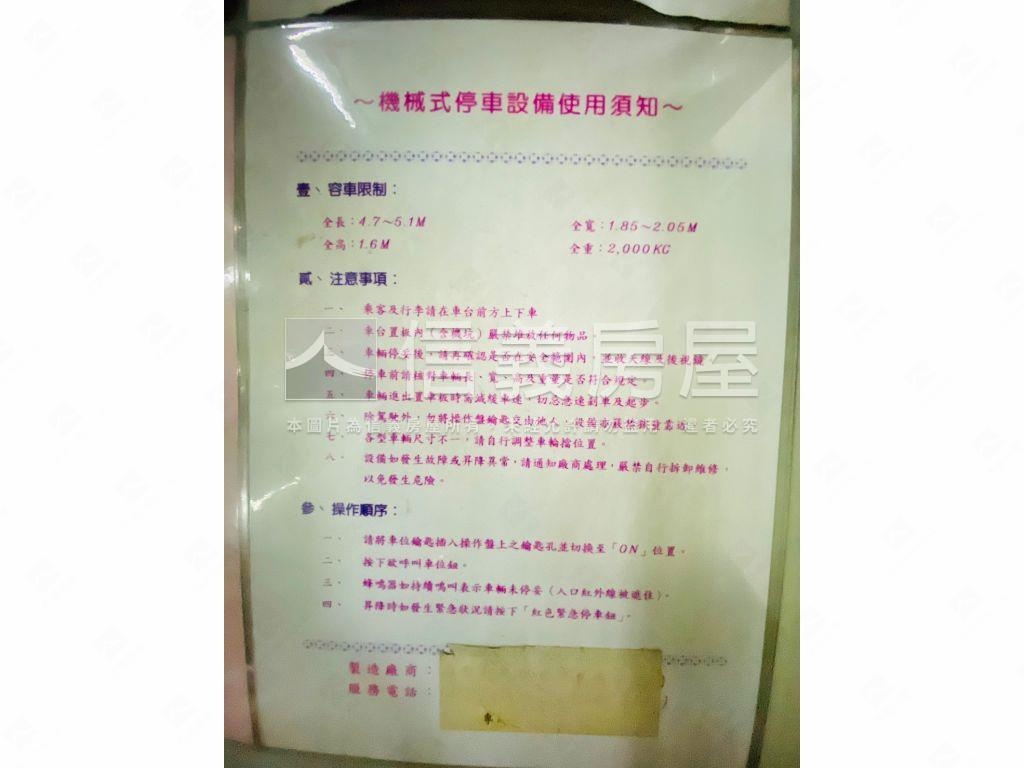 ～機械式停車設備使用須知～
壹、容車限制：
全長：4.7～5.1M 全寬：1.85～2.05M
全高：1.6M 全重：2,000KG
貳、注意事項：
一、 乘客及行李請在車台前方上下車
二、 車台置板內（含機坑）嚴禁堆放任何物品
三、 車輛停妥後，請再確認是否在安全範圍內，並收天線及後視鏡
四、 停車前請核對車輛長、寬、高及重量是否符合規定。
五、 車輛進出置車板時需減緩車速，切忌急速剎車及起步。
六、 除駕駛外，勿將操作盤鑰匙交由他人，
七、 各型車輛尺寸不一，請自行調整車輪擋位置。
八、 設備如發生故障或昇降異常，請通知廠商處理，嚴禁自行拆卸維修，
以免發生危險。
信義房屋
本圖片為信義房屋所有，未經允許請勿盜用，違者必究
參、操作順序：
一、 請將車位鑰匙插入操作盤上之鑰匙孔並切換至「ON」位置。
二、 按下欲呼叫車位鈕。
三、 蜂鳴器如持續鳴叫表示車輛未停妥（入口紅外線被遮住）。
四、 昇降時如發生緊急狀況請按下「紅色緊急停車鈕」。
製造廠商：
服務電話：